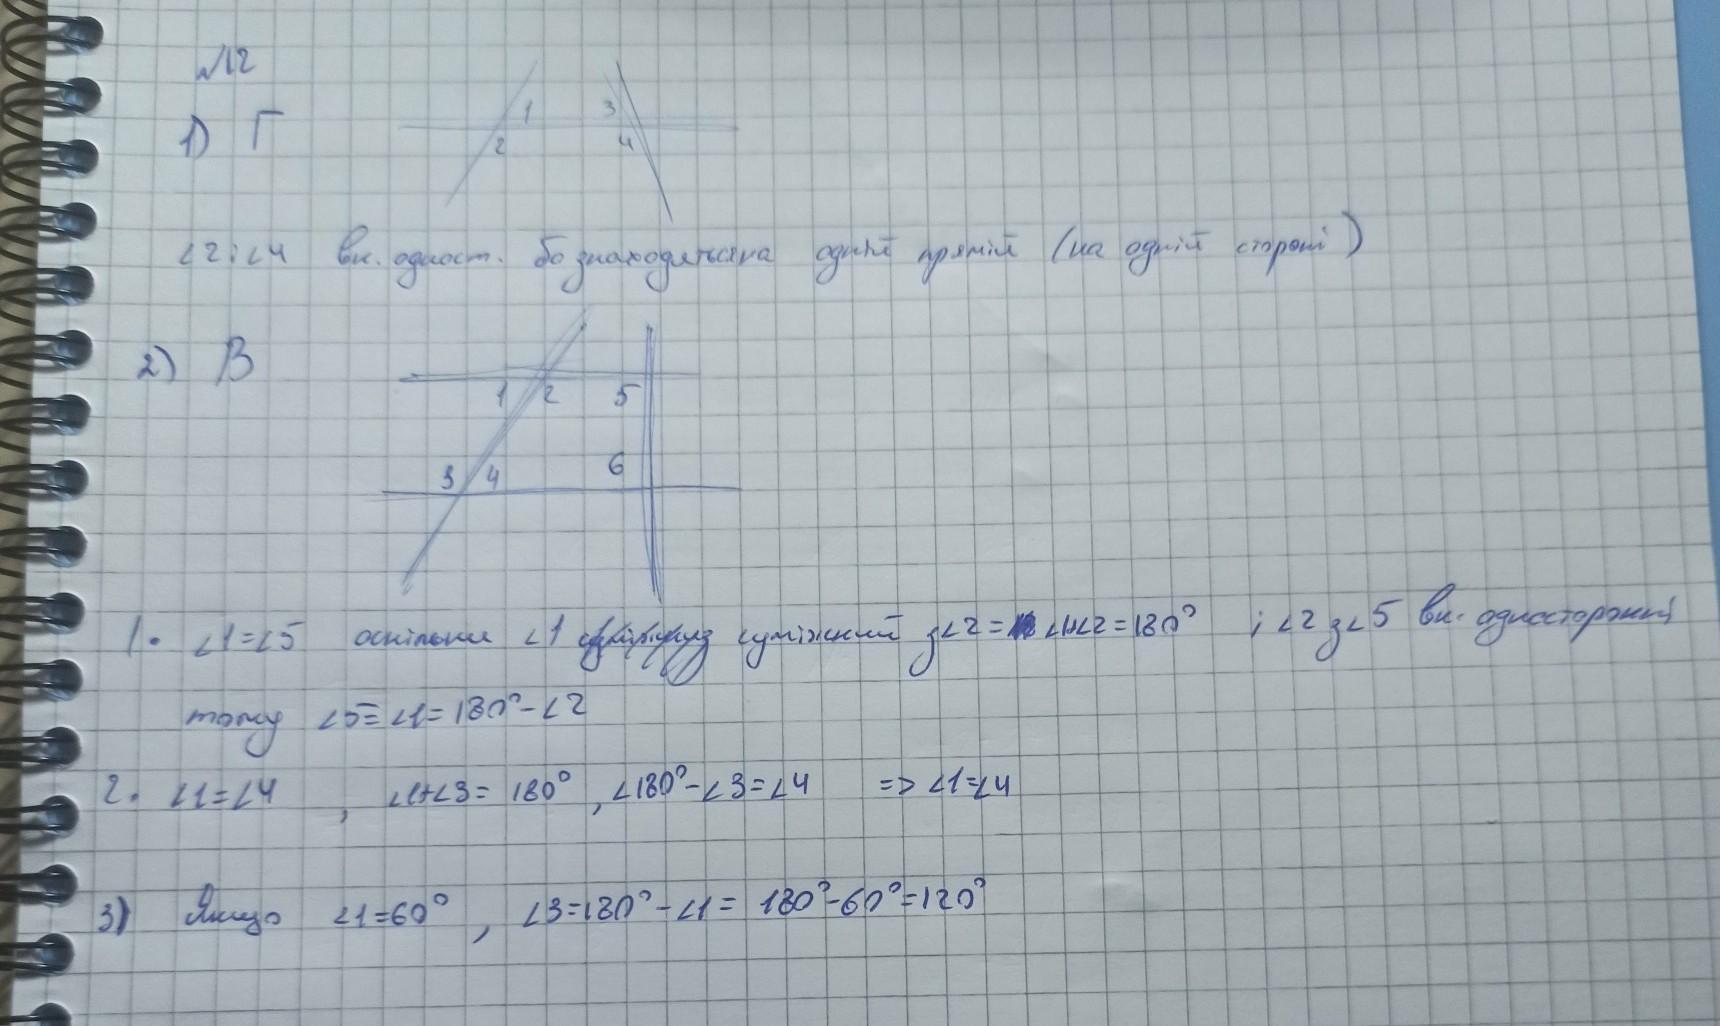 №12
1) Г
1 3
2 4
∠2 і ∠4 вн. одност. бо знаходяться на одній прямій (на одній стороні)
2) В
1 2 5
3 4 6
1. ∠1=∠5 оскільки ∠1 суміжний з ∠2 = ∠1+∠2=180° ; ∠2 з ∠5 вн. односторонні
тому ∠5=∠1=180°-∠2
2. ∠1=∠4 , ∠1+∠3=180° , ∠180°-∠3=∠4 => ∠1=∠4
3) Якщо ∠1=60° , ∠3=180°-∠1= 180°-60°=120°